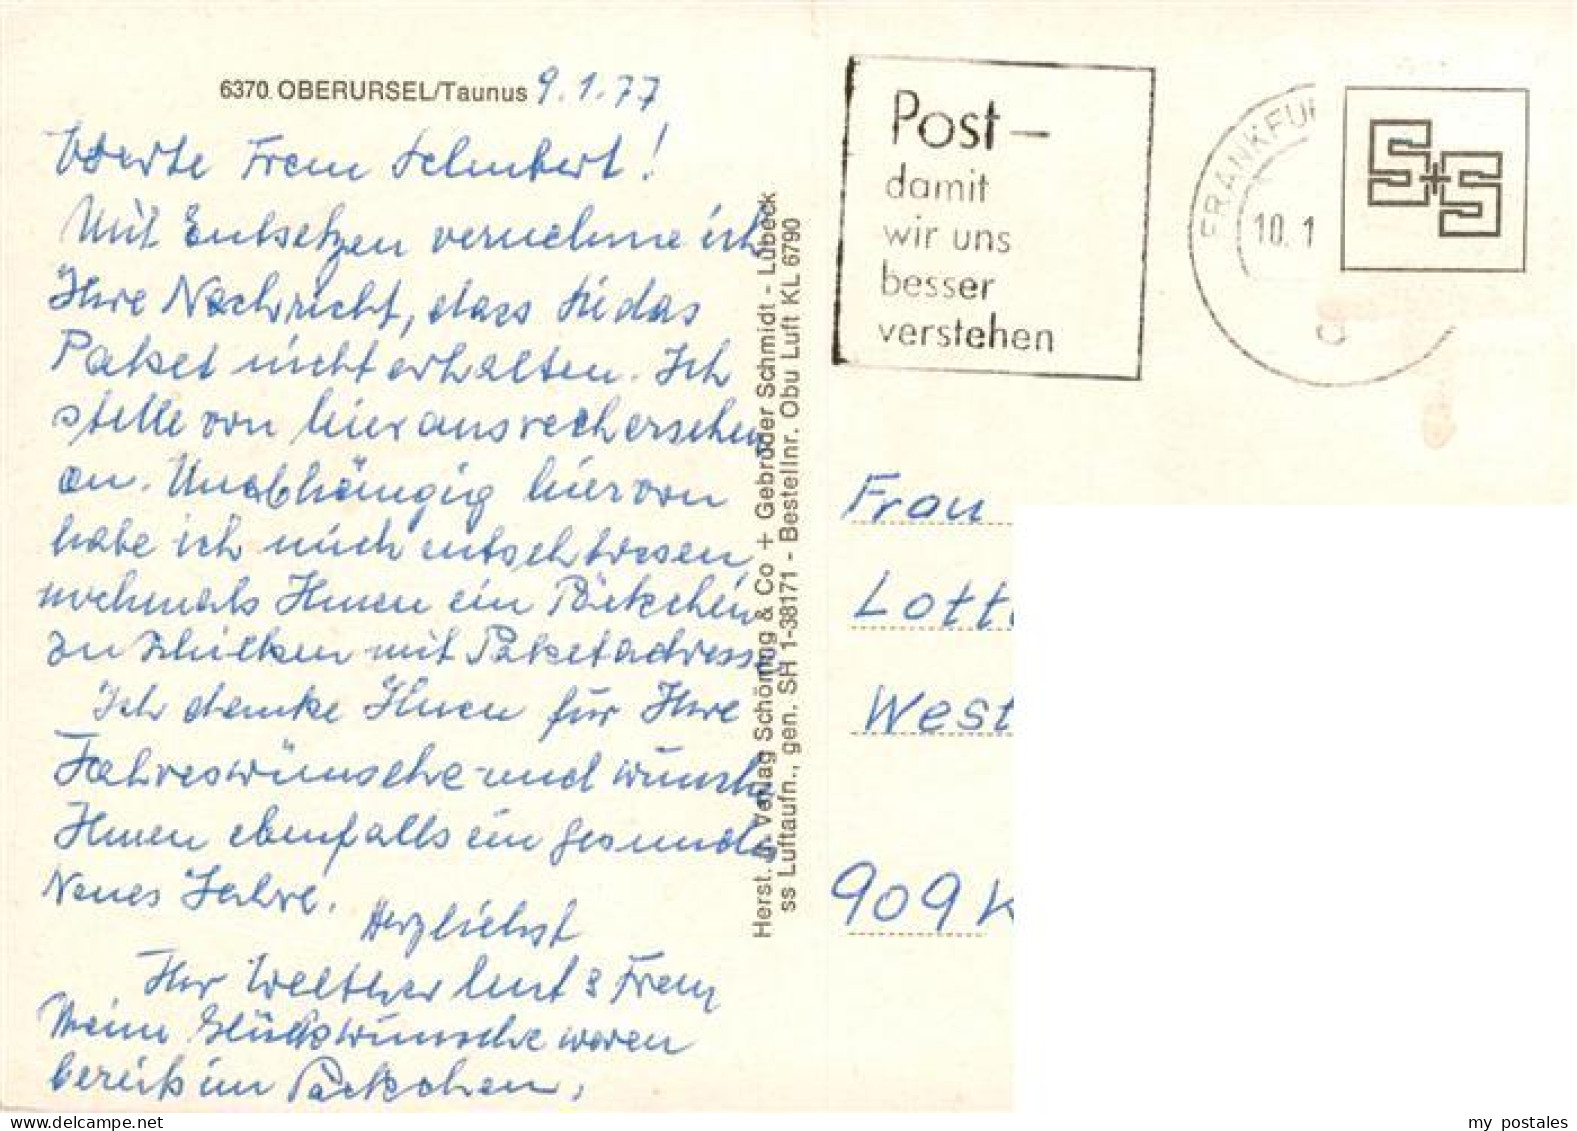 6370 OBERURSEL/Taunus 9.1.77
Werte Frau Schubert!
Mit Entsetzen vernehme ich
Ihre Nachricht, dass Sie das
Paket nicht erhalten. Ich
stelle von hier aus recherschen
an. Unabhängig hiervon
habe ich mich entschlossen,
nochmals Ihnen ein Päckchen
zu schicken mit Paketadresse
Ich danke Ihnen für Ihre
Jahreswünsche und wünsche
Ihnen ebenfalls ein gesundes
Neues Jahre.
Herzlichst
Ihr Frau
Meine Glückwünsche waren
bereits im Päckchen.
Herst. u. Verlag Schöning & Co + Gebrüder Schmidt - Lübeck
ss Luftaufn., gen. SH 1-38171 - Bestellnr. Obu Luft KL 6790
Post –
damit
wir uns
besser
verstehen
FRANKFU
10. 1
S+S
Frau
Lott
West
909 K
my postales